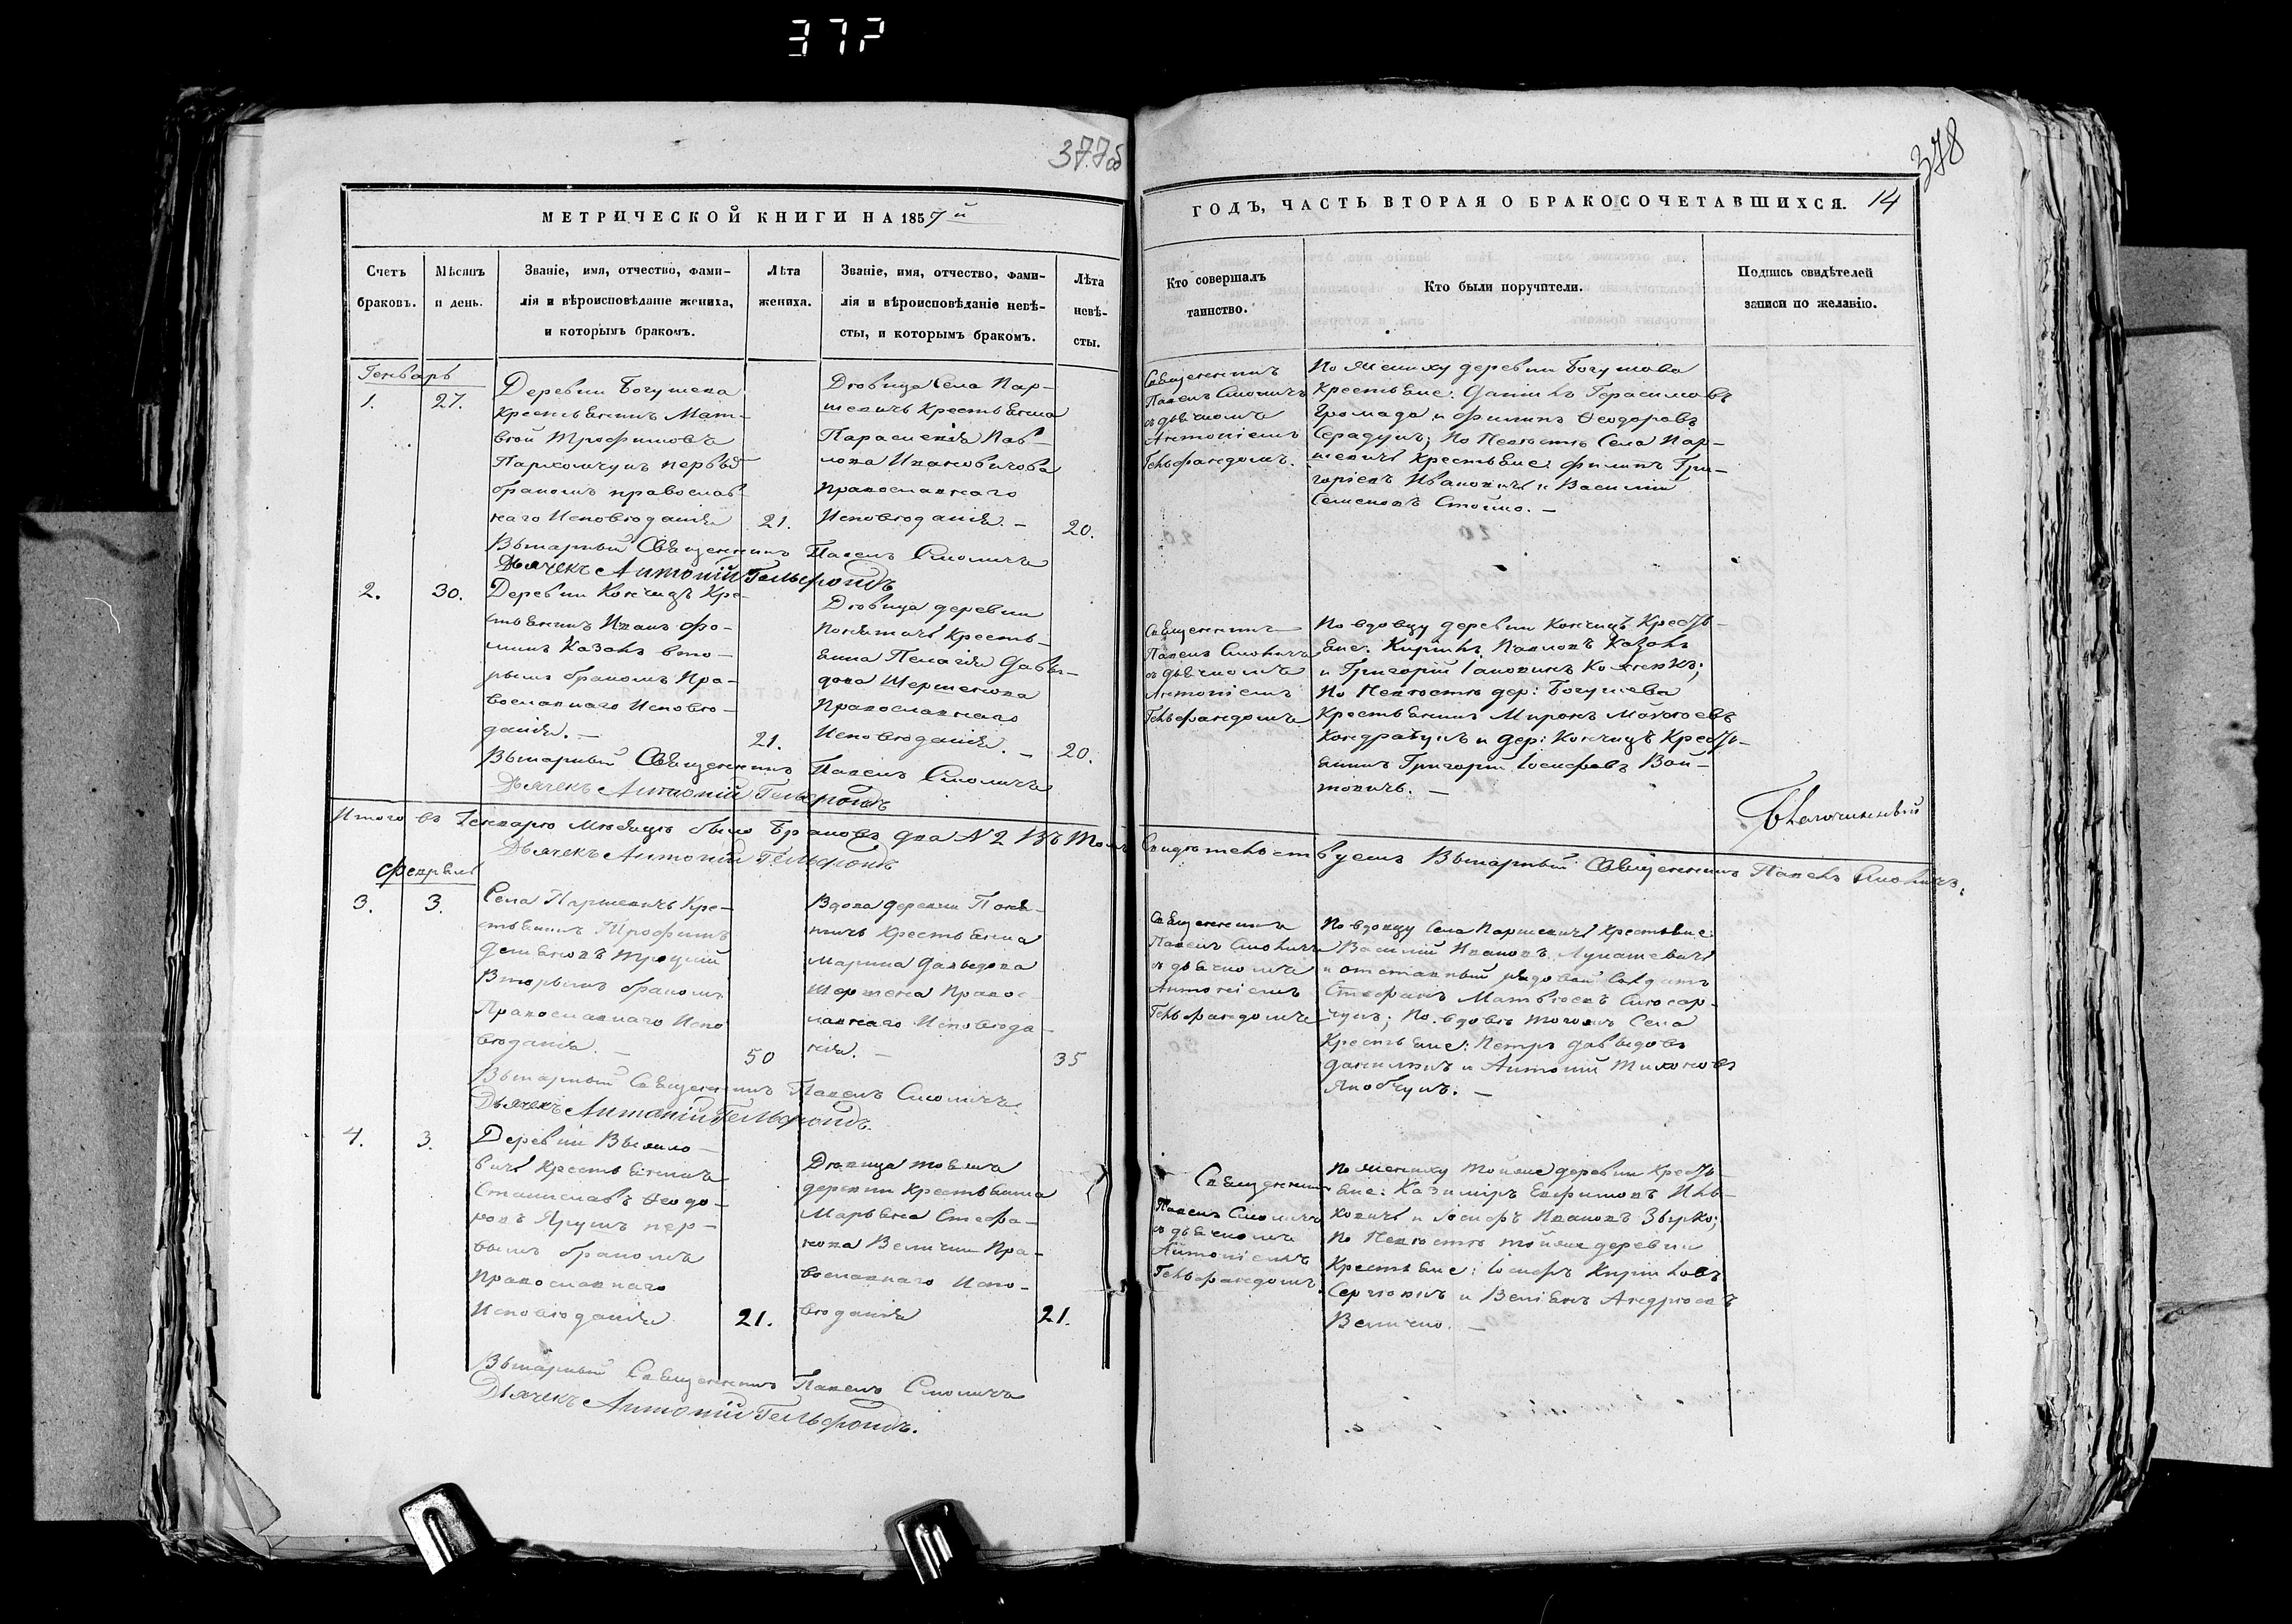 377
377об
МЕТРИЧЕСКОЙ КНИГИ НА 1857й
Счетъ браковъ.
Мѣсяцъ и день.
Званіе, имя, отчество, фами-
лія и вѣроисповѣданіе жениха,
и которымъ бракомъ.
Лѣта жениха.
Званіе, имя, отчество, фами-
лія и вѣроисповѣданіе невѣ-
сты, и которымъ бракомъ.
Лѣта
невѣ-
сты.
Генварь
1.
27.
Деревни Богушева
Крестьянинъ Мат-
вѣй Трофимовъ
Пархомчукъ первы
бракомъ православ
наго Исповѣданія
21.
Дѣвица Села Пар-
шевичъ Крестьянка
Параскевія Пав-
лова Ивановичова
Православнаго
Исповѣданія. —
20.
Викарный Священникъ Павелъ Смоличъ
Дьячекъ Антоній Гельфондъ
2.
30.
Деревни Кончицъ Кре-
стьянинъ Иванъ Фо-
минъ Казакъ вто-
рымъ бракомъ Пра-
вославнаго Исповѣ-
данія. —
21.
Дѣвица деревни
Крестъ-
янка Пелагія Давы-
дова Шершенова
Православнаго
Исповѣданія. —
20.
Викарный Священникъ Павелъ Смоличъ
Дьячекъ Антоній Гельфондъ
Итого въ Генварѣ Мѣсяцѣ было Браковъ два N 2 Въ Томъ
Дьячекъ Антоній Гельфондъ
Февраль
3.
3.
Села Паршевичъ Кре-
стьянинъ Трофимъ
Демьяновъ Троцкій
Вторымъ бракомъ
Православнаго Испо
вѣданія. —
50
Вдова деревни
Крестьянка
Марина Давыдова
Шершена Правос-
лавнаго Исповѣда-
нія. —
35
Викарный Священникъ Павелъ Смоличъ
Дьячекъ Антоній Гельфондъ.
4.
3.
Деревни
Крестьянинъ
Станиславъ Ѳеодо-
ровъ Ярушъ пер-
вымъ бракомъ
Православнаго
Исповѣданія
21.
Дѣвица тоя же
деревни Крестьянка
Марьяна Стефа-
нова Велички Пра-
вославнаго Испо-
вѣданія
21.
Викарный Священникъ Павелъ Смоличъ
Дьячекъ Антоній Гельфондъ.
378
ГОДЪ, ЧАСТЬ ВТОРАЯ О БРАКОСОЧЕТАВШИХСЯ. 14
Кто совершалъ
таинство.
Кто были поручители.
Подпись свидѣтелей
записи по желанію.
Священникъ
Павелъ Смоличъ
съ дьячкомъ
Антоніемъ
Гельфандомъ.
По Жениху деревни Богушова
Крестьяне: Данилъ Герасимовъ
Громада и Филипъ Ѳеодоровъ
Середукъ; По Невѣстѣ Села Пар-
шевичъ Крестьяне: Филипъ Гри-
горіевъ Ивановичъ и Василій
Семеновъ Стойко. —
Священникъ
Павелъ Смоличъ
съ дьячкомъ
Антоніемъ
Гельфандомъ
По вдовцу деревни Кончицъ Кресть-
яне: Кирилъ Павловъ Казакъ
и Григорій
По Невѣстѣ дер: Богушева
Крестьянинъ Миронъ
Кондратукъ и дер: Кончицъ Кресть-
янинъ Григорій Іосифовъ Вой-
товичъ. —
Благочинный
Свидѣтельствуемъ Викарный Священникъ Павелъ Смоличъ.
Священникъ
Павелъ Смоличъ
съ дьячкомъ
Антоніемъ
Гельфандомъ
По вдовцу Села Паршевичъ Крестьяне:
Василій Ивановъ Лукашевичъ
и отставный рядовой Солдатъ
Стефанъ Матвѣевъ Слюсар-
чукъ; По вдовѣ тогожъ Села
Крестьяне: Петръ Давыдовъ
и Антоній Тихоновъ
Якобчукъ. —
Священникъ
Павелъ Смоличъ
съ дьячкомъ
Антоніемъ
Гельфандомъ.
По Жениху тойже деревни Кресть-
яне: Казиміръ Евфимовъ Иль-
ковичъ и Іосифъ Ивановъ Зырко;
По Невѣстѣ тойже деревни
Крестьяне: Іосифъ Кириловъ
и Андреевъ
Величко. —